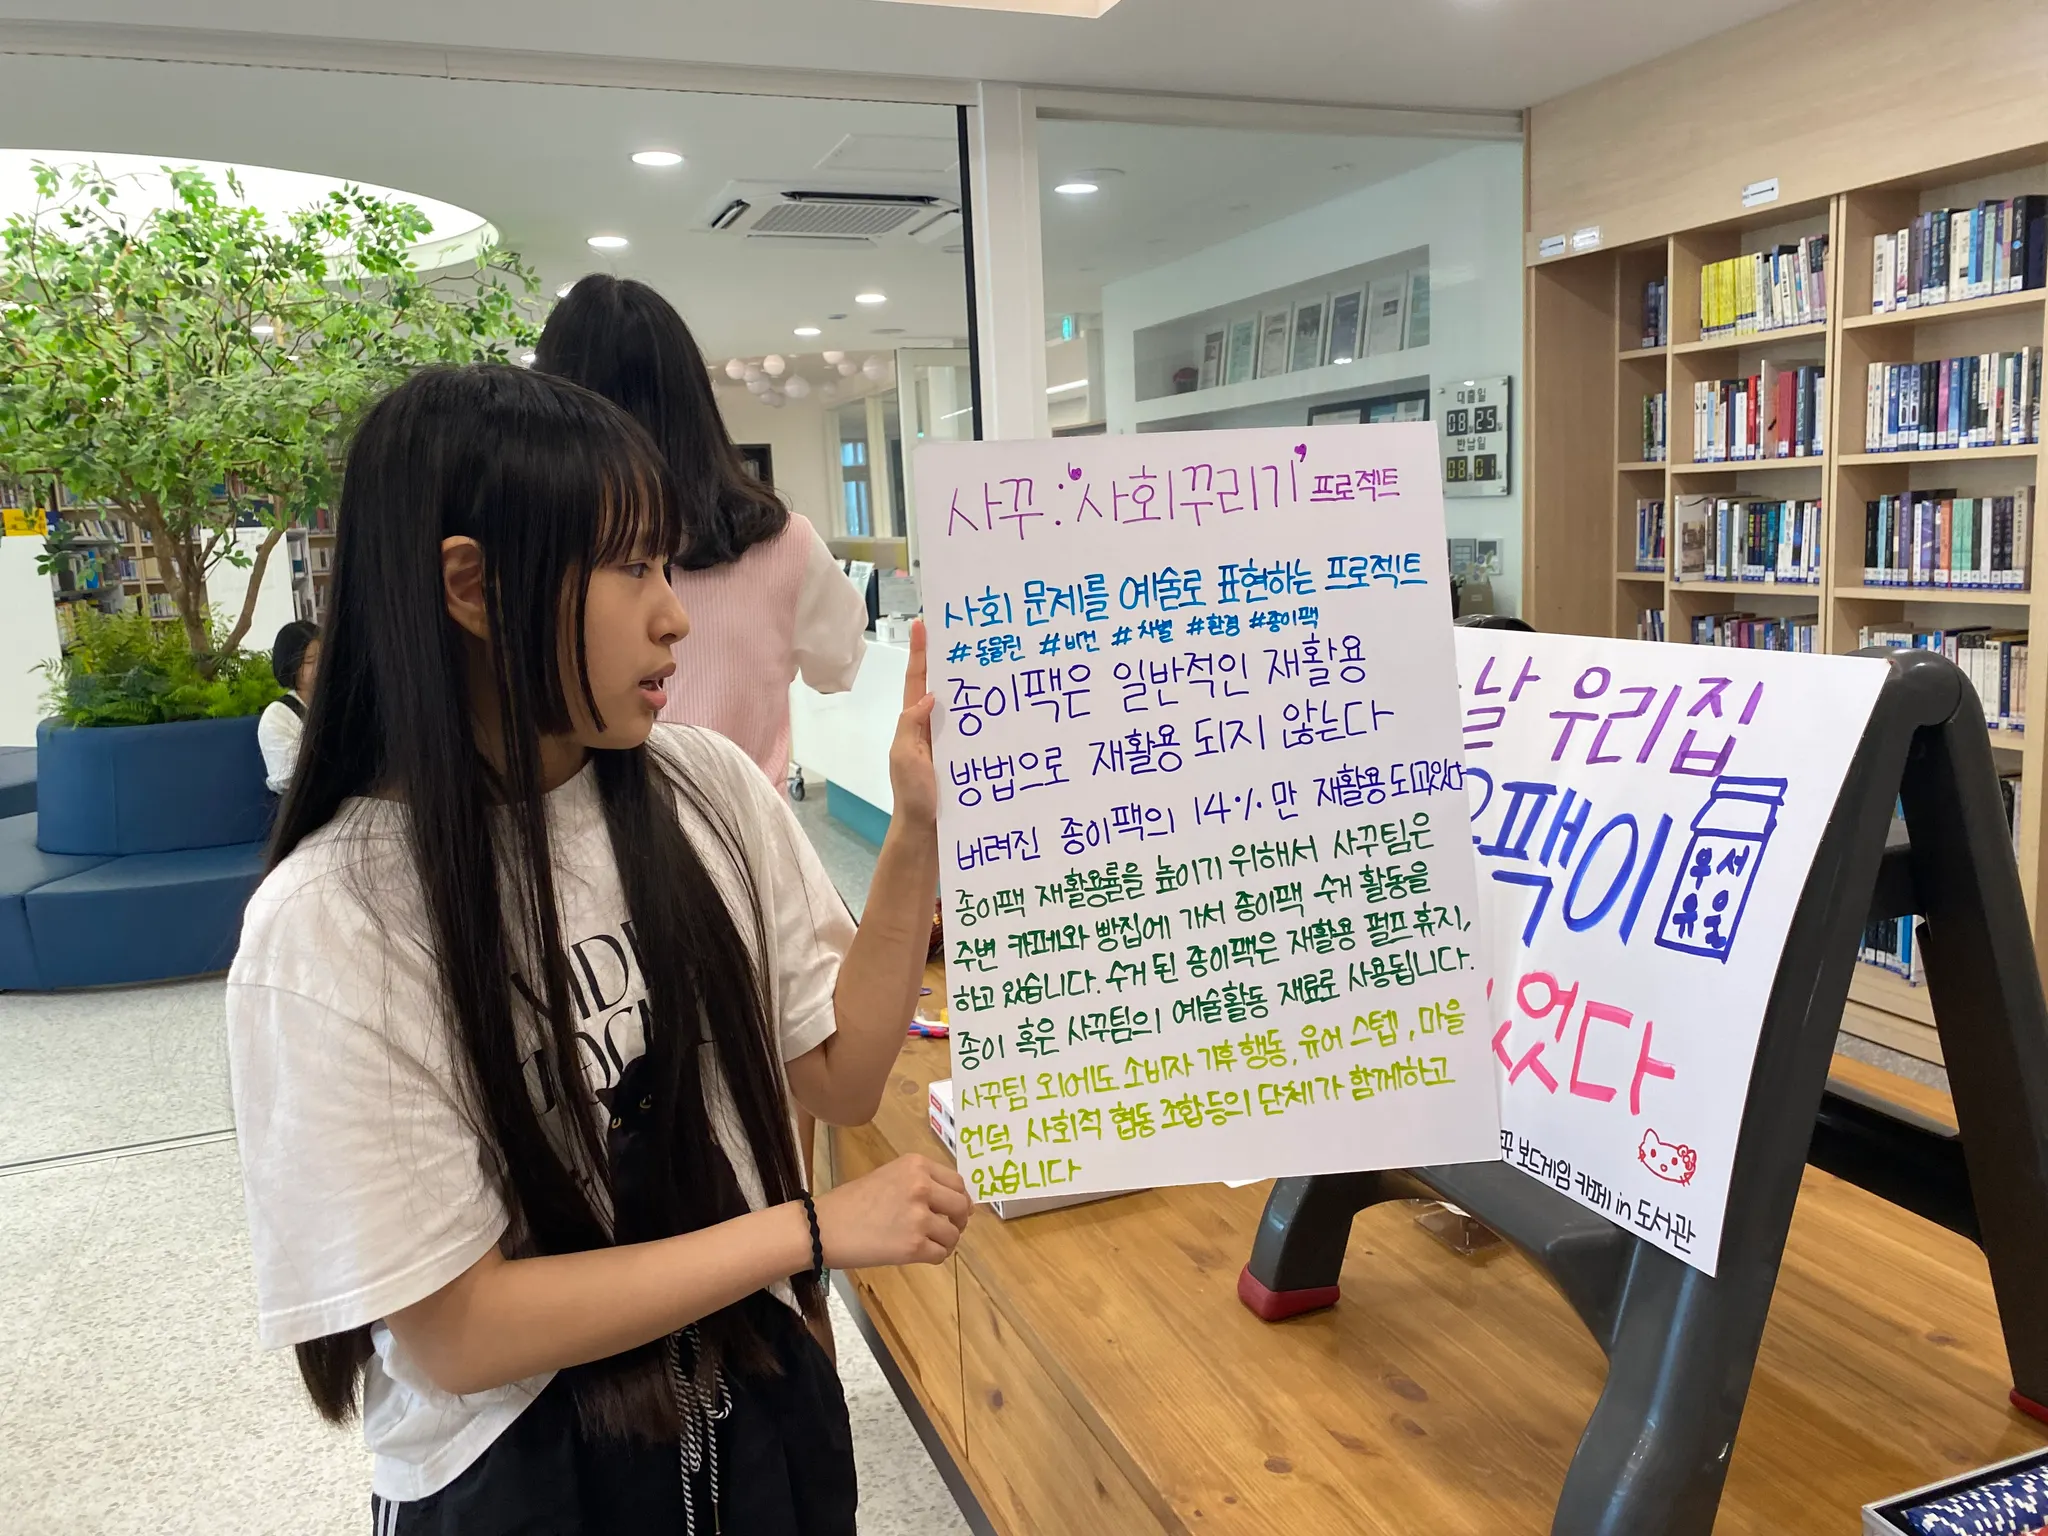 사꾸 : '사회꾸리기' 프로젝트
사회 문제를 예술로 표현하는 프로젝트
#동물권 #비건 #차별 #환경 #종이팩
종이팩은 일반적인 재활용
방법으로 재활용 되지 않는다
버려진 종이팩의 14%만 재활용 되고있다
종이팩 재활용률을 높이기 위해서 사꾸팀은
주변 카페와 빵집에 가서 종이팩 수거 활동을
하고 있습니다. 수거된 종이팩은 재활용 펄프 휴지,
종이 혹은 사꾸팀의 예술활동 재료로 사용됩니다.
사꾸팀 외에도 소비자 기후행동, 유어스텝, 마을
언덕 사회적 협동조합등의 단체가 함께하고
있습니다
날 우리집
팩이
서울
우유
었다
꾸 보드게임 카페 in 도서관
대출일
08 25
반납일